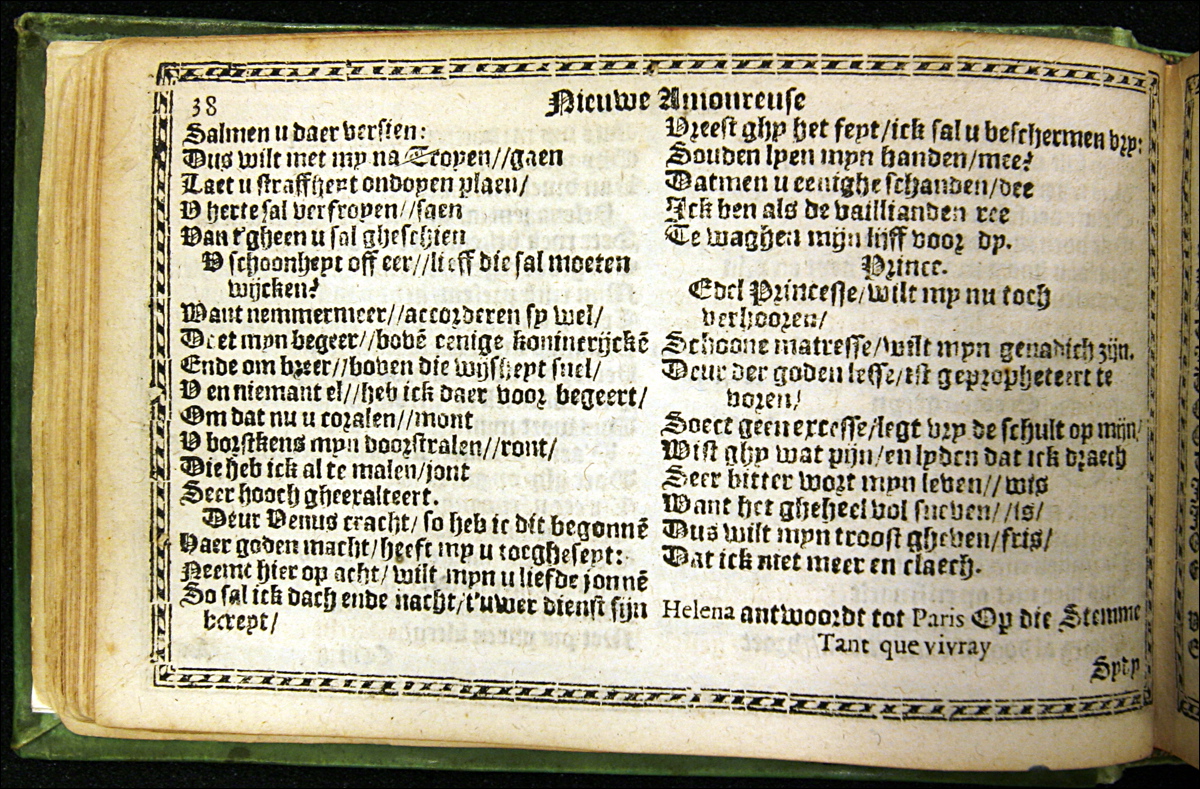 38
Nieuwe Amoureuse
Salmen u daer versien:
Dus wilt met my na Troyen//gaen
Laet u straffheyt ondoyen plaen/
V herte sal verfroyen//saen
Van t'gheen u sal gheschien
V schoonheyt off eer//lieff die sal moeten
wijcken?
Want nemmermeer//accorderen sy wel/
Doet myn begeer//bovē eenige koninrijckē
Ende om breer//boven die wijsheyt snel/
V en niemant el//heb ick daer voor begeert/
Om dat nu u coralen//mont
V borstkens myn doorstralen//ront/
Die heb ick al te malen/jont
Seer hooch gheeralteert.
Deur Venus cracht/ so heb ic dit begonnē
Haer goden macht/heeft my u toegheseyt:
Neemt hier op acht/ wilt myn u liefde jonnē
So sal ick dach ende nacht/t'uwer dienst sijn
bereyt/
Vreest ghy het feyt/ick sal u beschermen vry:
Souden lyen myn handen/mee?
Datmen u eenighe schanden/dee
Ick ben als de vaillianden ree
Te waghen mijn lijff voor dy.
Prince.
Edel Princesse/wilt my nu toch
verhooren/
Schoone matresse/wilt myn genadich zijn.
Deur der goden lesse/ist gepropheteert te
voren/
Soect geen excesse/legt vry de schult op mijn/
Wist ghy wat pijn/en lyden dat ick draech
Seer bitter wort myn leven//wis
Want het gheheel vol sneven//is/
Dus wilt myn troost gheven/fris/
Dat ick niet meer en claech.
Helena antwoordt tot Paris Op die Stemme
Tant que vivray
Spty